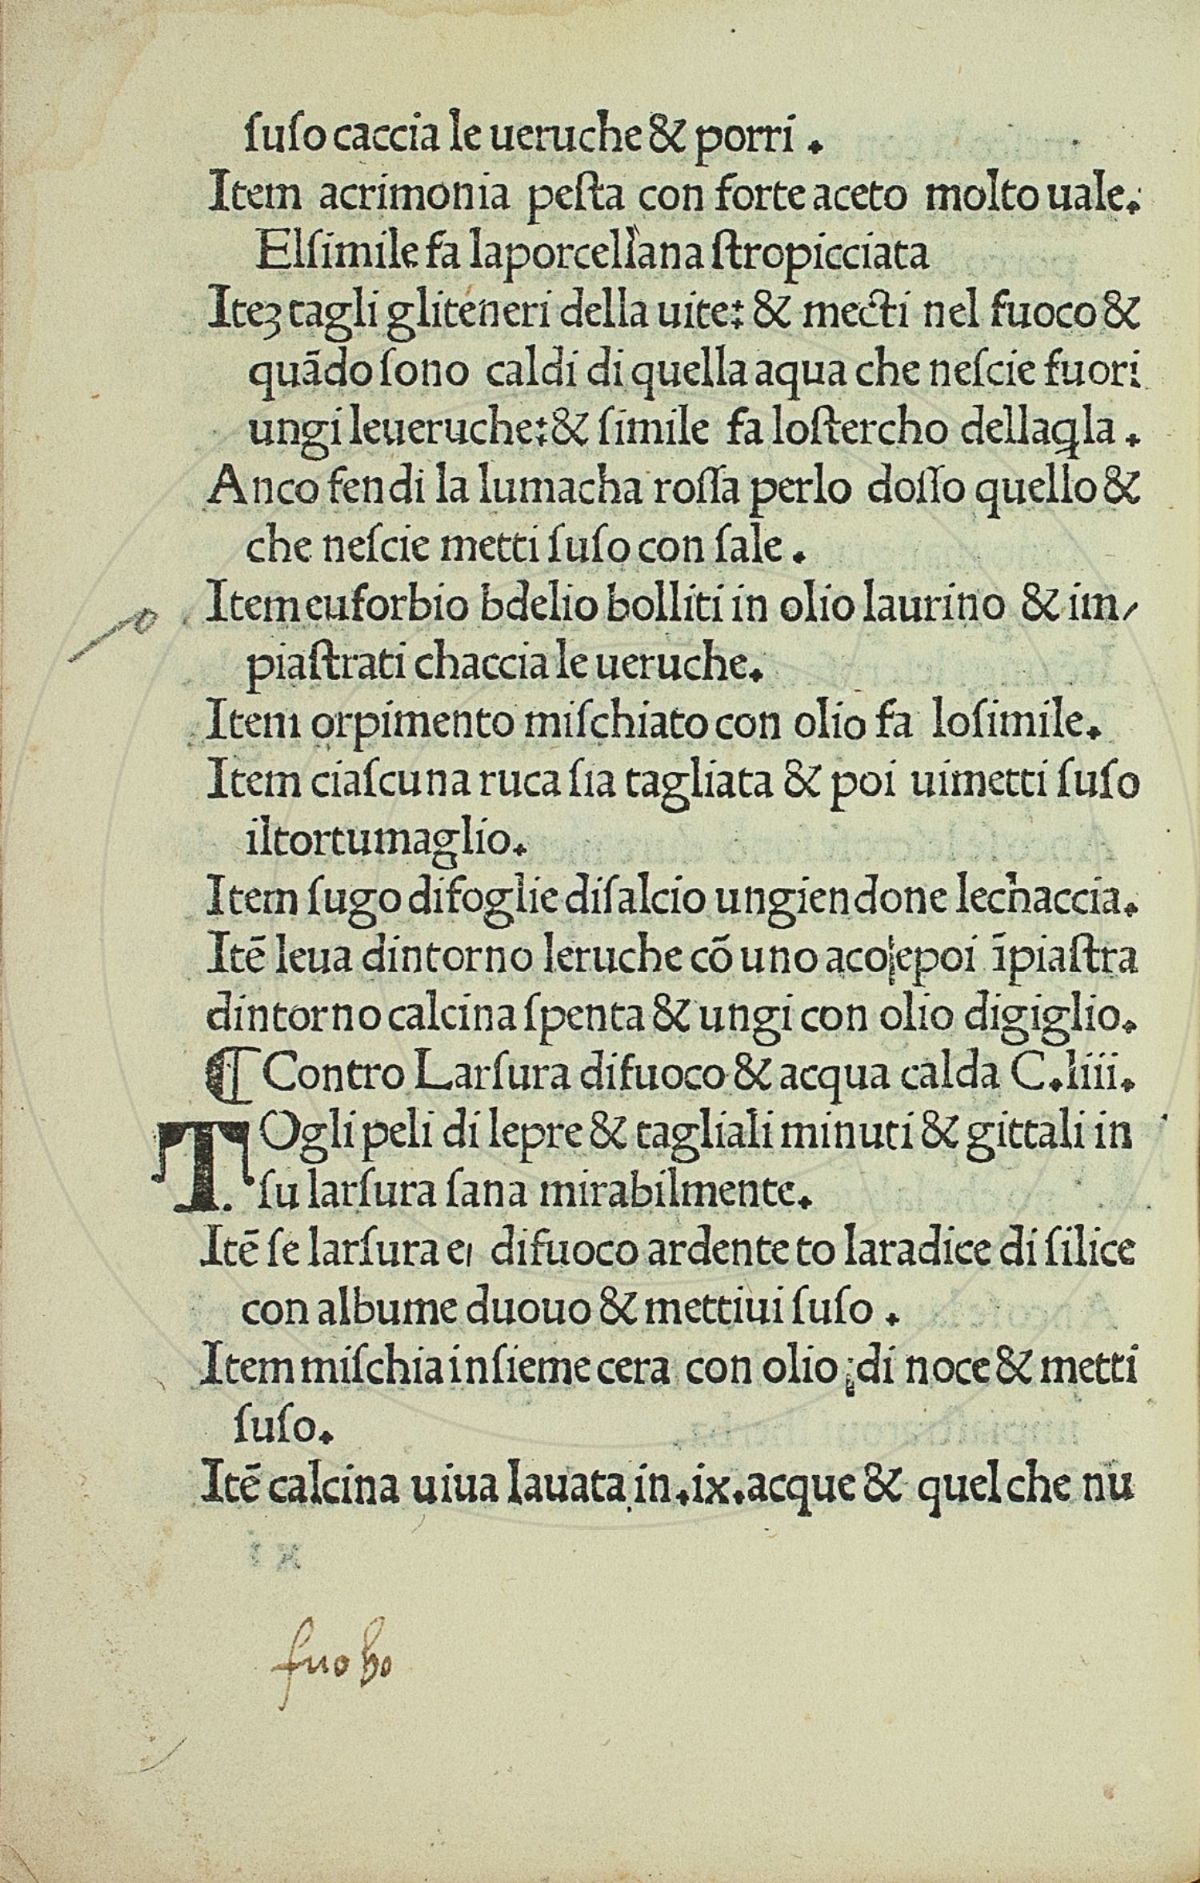 ſuſo caccia le ueruche & porri .
Item acrimonia peſta con forte aceto molto uale.
Elſimile fa laporcellana ſtropicciata
Iteꝫ tagli gliteneri della uite: & mecti nel fuoco &
quādo ſono caldi di quella aqua che neſcie fuori
ungi leueruche: & ſimile fa loſtercho dellaqla .
Anco fendi la lumacha roſſa perlo doſſo quello &
che neſcie metti ſuſo con ſale .
Item euforbio bdelio bolliti in olio laurino & im/
piaſtrati chaccia le ueruche.
Item orpimento miſchiato con olio fa loſimile.
Item ciaſcuna ruca ſia tagliata & poi uimetti ſuſo
iltortumaglio.
Item ſugo difoglie diſalcio ungiendone lechaccia.
Itē leua dintorno leruche cō uno aco epoi īpiaſtra
dintorno calcina ſpenta & ungi con olio digiglio.
¶ Contro Larſura difuoco & acqua calda C.liii.
TOgli peli di lepre & tagliali minuti & gittali in
ſu larſura ſana mirabilmente.
Itē ſe larſura e, difuoco ardente to laradice di ſilice
con albume duouo & mettiui ſuſo .
Item miſchia inſieme cera con olio di noce & metti
ſuſo.
Itē calcina uiua lauata in.ix.acque & quel che nu